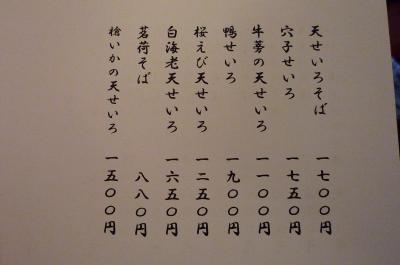 天せいろそば 一七〇〇円
穴子せいろ 一七五〇円
牛蒡の天せいろ 一一〇〇円
鴨せいろ 一九〇〇円
桜えび天せいろ 一二五〇円
白海老天せいろ 一六五〇円
茗荷そば 八八〇円
槍いかの天せいろ 一五〇〇円